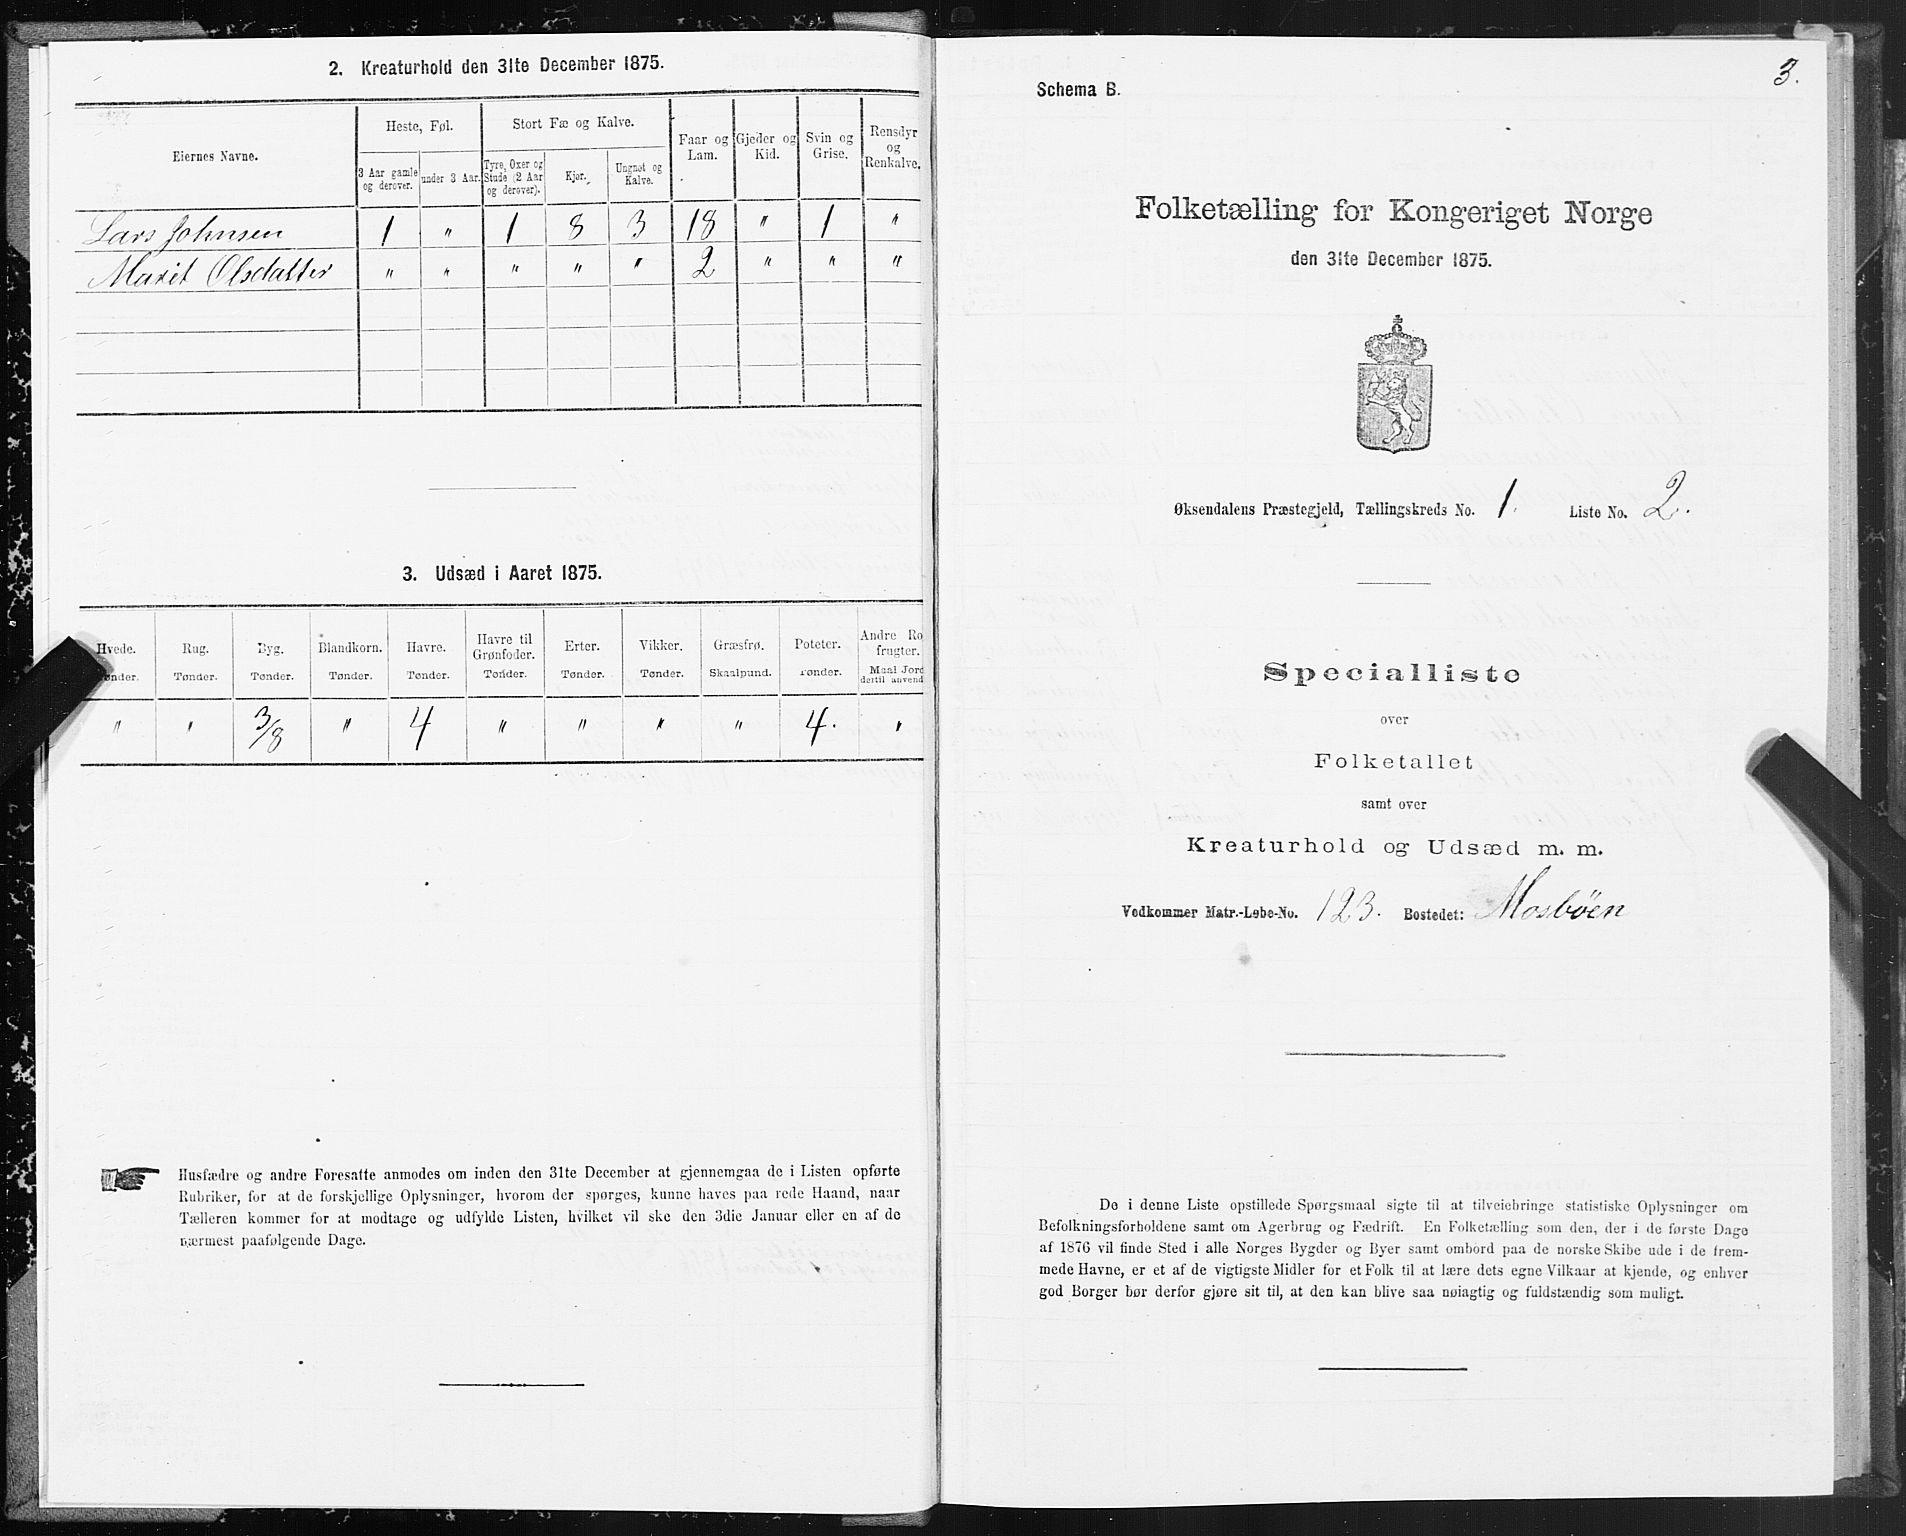 2. Kreaturhold den 31te December 1875.
Eiernes Navne.
Heste, Føl.
Stort Fæ og Kalve.
Faar og Lam.
Gjeder og Kid.
Svin og Grise.
Rensdyr og Renkalve.
3 Aar gamle og derover.
under 3 Aar.
Tyre, Oxer og Stude (2 Aar og derover).
Kjør.
Ungnøt og Kalve.
Lars Johnsen 1 " 1 8 3 18 " 1 "
Marit Olsdatter " " " " " 2 " " "
3. Udsæd i Aaret 1875.
Hvede. Rug. Byg. Blandkorn. Havre. Havre til Grønfoder. Erter. Vikker. Græsfrø. Poteter. Andre Ro
frugter.
Tønder. Tønder. Tønder. Tønder. Tønder. Tønder. Tønder. Skaalpund. Tønder. Maal Jord
dertil anvend
" " 3/8 " 4 " " " " 4. "
Husfædre og andre Foresatte anmodes om inden den 31te December at gjennemgaa de i Listen opførte
Rubriker, for at de forskjellige Oplysninger, hvorom der spørges, kunne haves paa rede Haand, naar
Tælleren kommer for at modtage og udfylde Listen, hvilket vil ske den 3die Januar eller en af de
nærmest paafølgende Dage.
3.
Schema B.
Folketælling for Kongeriget Norge
den 31te December 1875.
Øksendalens Præstegjeld, Tællingskreds No. 1. Liste No. 2.
Specialliste
over
Folketallet
samt over
Kreaturhold og Udsæd m. m.
Vedkommer Matr.-Løbe-No. 123. Bostedet: Mosbøen
De i denne Liste opstillede Spørgsmaal sigte til at tilveiebringe statistiske Oplysninger om
Befolkningsforholdene samt om Agerbrug og Fædrift. En Folketælling som den, der i de første Dage
af 1876 vil finde Sted i alle Norges Bygder og Byer samt ombord paa de norske Skibe ude i de frem-
mede Havne, er et af de vigtigste Midler for et Folk til at lære dets egne Vilkaar at kjende, og enhver
god Borger bør derfor gjøre sit til, at den kan blive saa nøiagtig og fuldstændig som muligt.